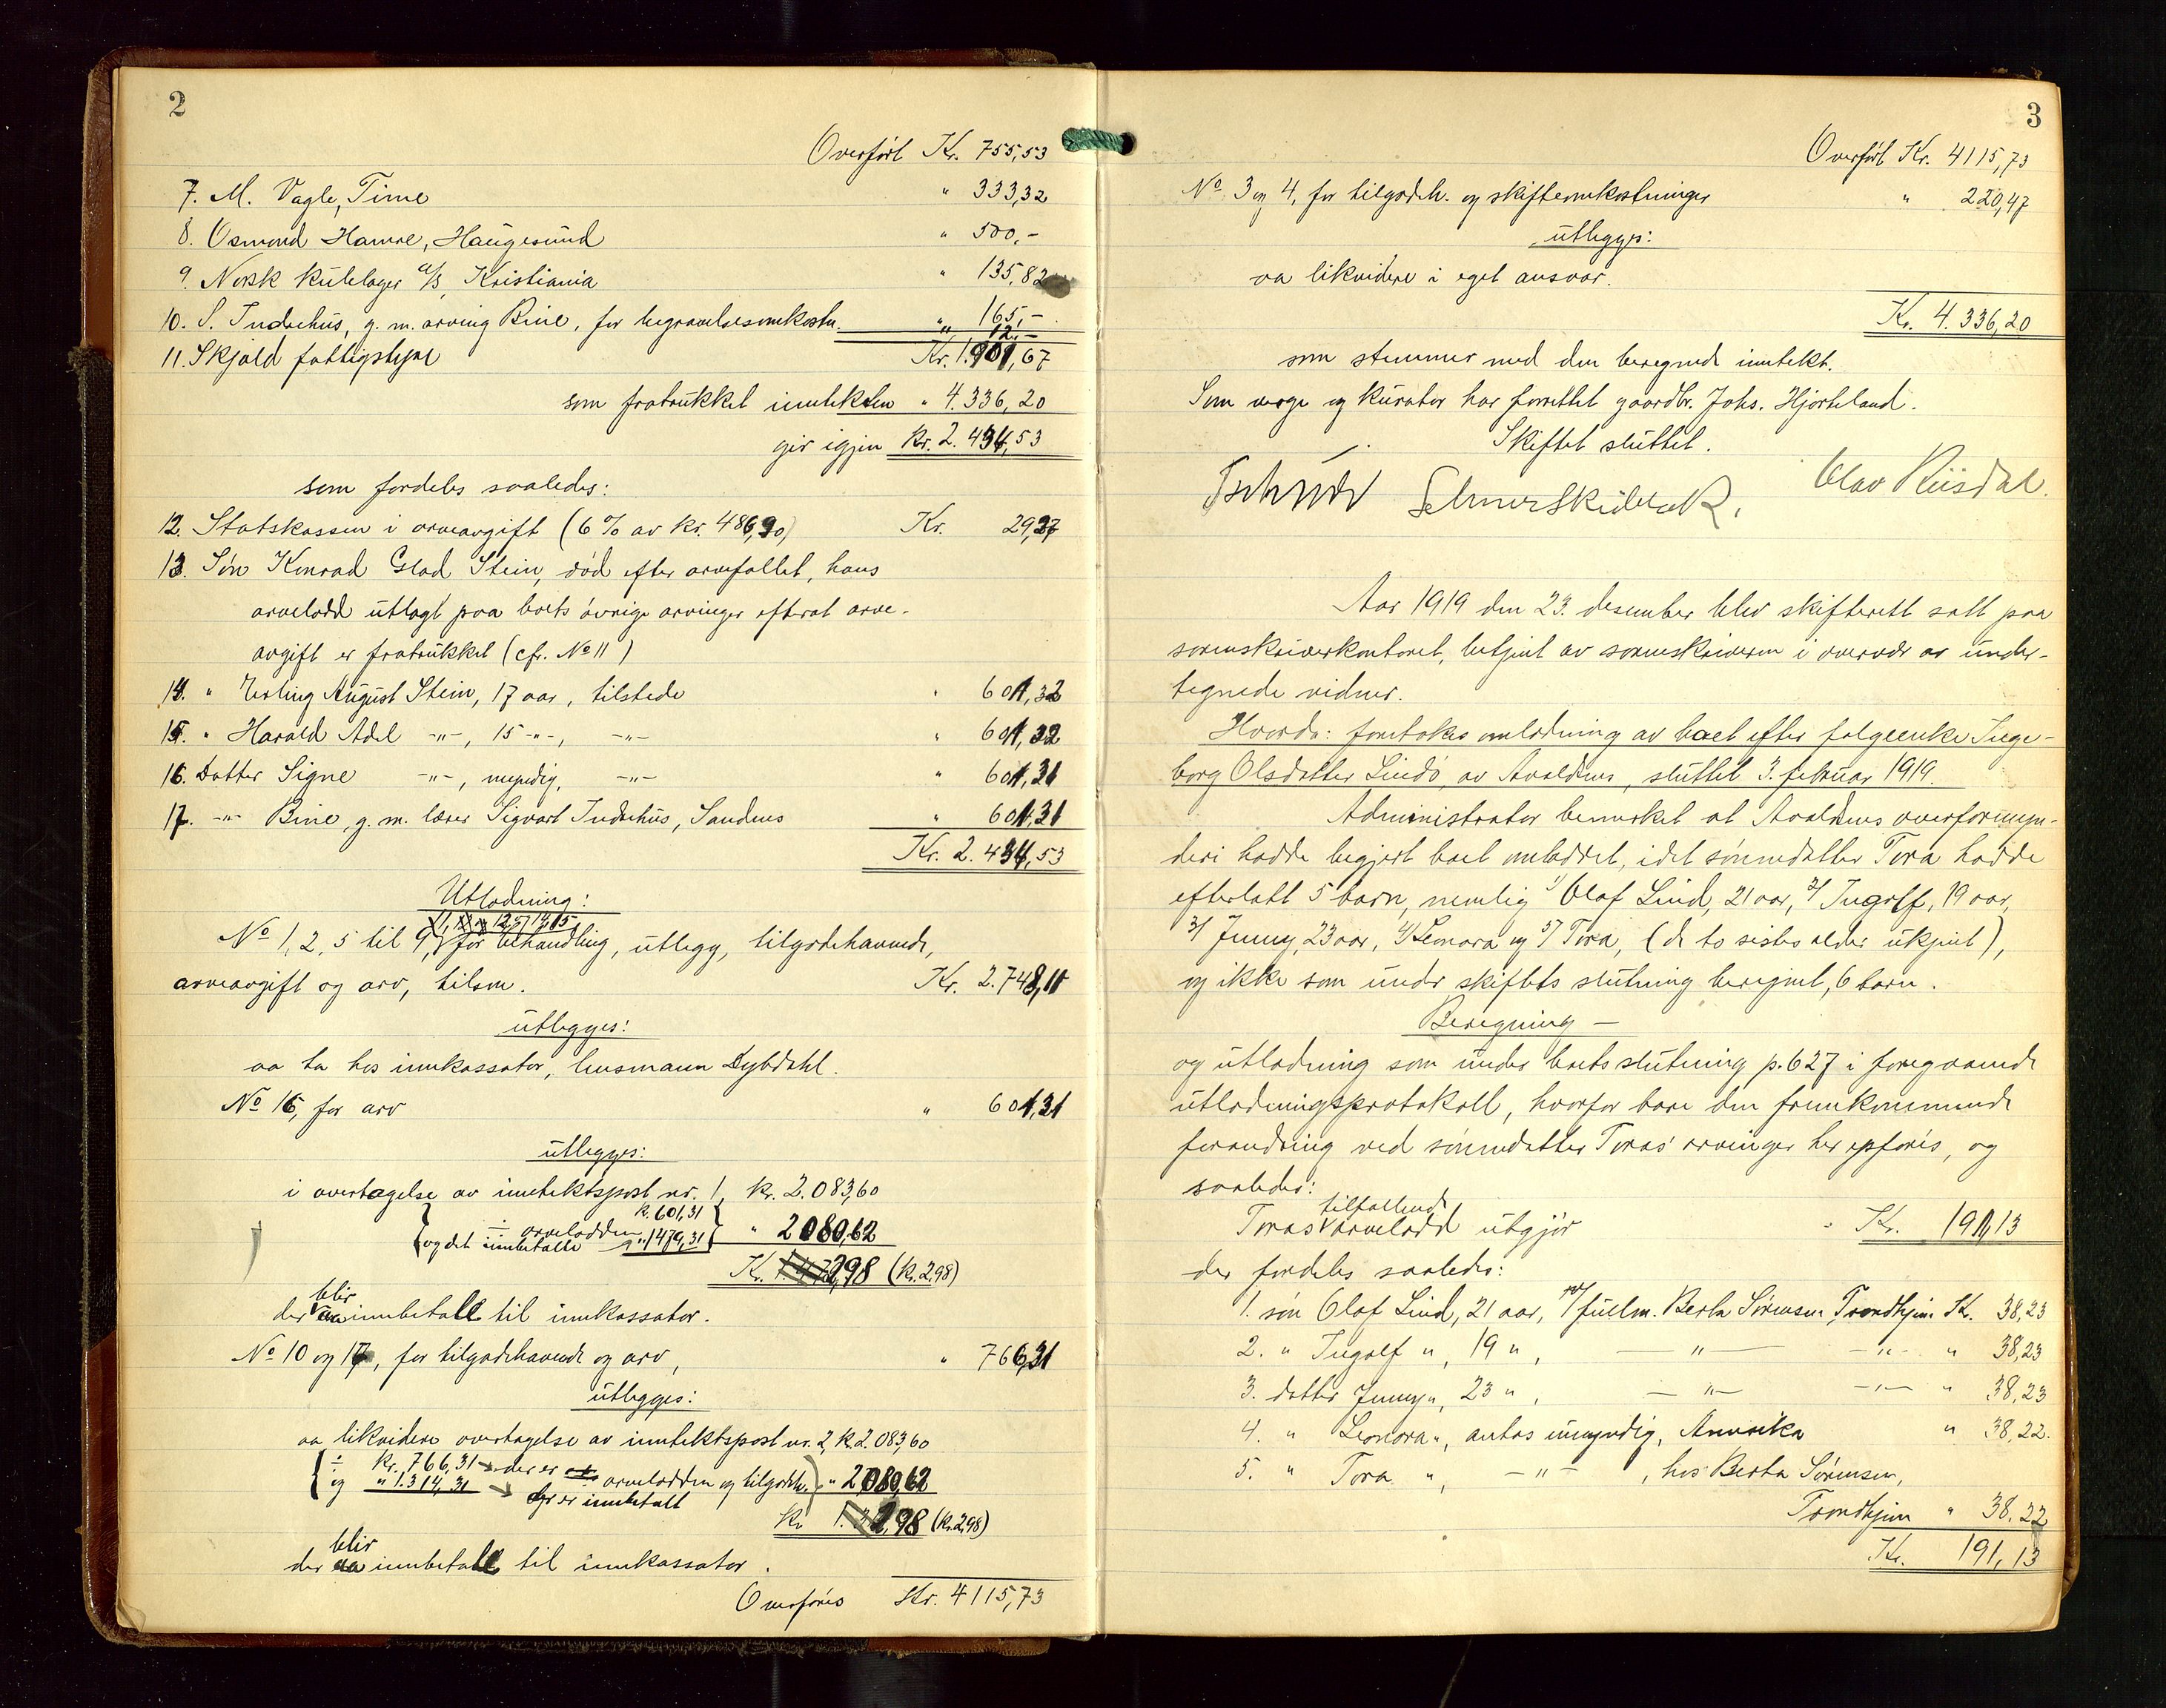 2
Overført Kr. 755,53
7. M. Vagle, Time " 333,32
8. Osmond Hamre, Haugesund " 500,-
9. Norsk Kulelager A/S, Kristiania " 135,82
10. S. Indrehus, g. m. arving Bine, for begravelsesomkostn. " 165,-
" 12,-
11. Skjold fattigstyre Kr. 1.901,67
som fratrukket inntekten " 4.336,20
gir igjen Kr. 2.434,53
som fordeles saaledes:
12. Statskassen i arveavgift (6 % av kr. 486,90) Kr. 29,27
13. Søn Konrad Glad Stein, død efter arvefallet, hans
arvelodd utlagt paa boets øvrige arvinger efterat arve-
avgift er fratrukket (cfr. No 11)
14. " Erling August Stein, 17 aar, tilstede " 601,32
15. " Harald Adel -"-, 15 -"-, -"- " 601,32
16. Datter Signe -"-, myndig, -"- " 601,31
17. -"- Bine, g. m. lærer Sigvart Indrehus, Sandnes " 601,31
Kr. 2.434,53
Utlodning:
11, 12, 14, 15
No 1, 2, 5 til 9, for behandling, utlegg, tilgodehavende,
arveavgift og arv, tilsm. Kr. 2.748,11
utlegges:
aa ta hos innkassator, lensmann Dybdahl.
No 16, for arv " 601,31
utlegges:
i overtagelse av inntektspost nr. 1, Kr. 2.083,60
÷ arvelodden k. 601,31
og det innbetalte " 1479,31 " 2080,62
Kr. 2,98 (Kr. 2,98)
blir
der aa innbetale til innkassator.
No 10 og 17, for tilgodehavende og arv, " 766,31
utlegges:
aa likvidere overtagelse av inntektspost nr. 2, k. 2.083,60
÷ Kr. 766,31 der er arvelodden og tilgodeh. " 2080,62
og " 1.314,31 der er innbetalt
Kr 2,98 (Kr. 2,98)
blir
der aa innbetale til innkassator.
Overføres Kr. 4115,73
3
Overført Kr. 4115,73
No 3 og 4, for tilgodeh. og skifteomkostninger " 220,47
utlegges:
aa likvidere i eget ansvar.
Kr. 4.336,20
som stemmer med den beregnede inntekt.
Som verge og kurator har forrettet gaardbr. Johs. Hjorteland.
Skiftet sluttet.
Olav Riisdal.
Aar 1919 den 23. desember blev skifterett satt paa
sorenskriverkontoret, betjent av sorenskriveren i overvær av under-
tegnede vidner.
Hvorda: foretokes omlodning av boet efter følgeenke Inge-
borg Olsdatter Lindø, av Avaldsnes, sluttet 3. februar 1919.
Administrator bemerket at Avaldsnes overformyn-
deri hadde begjert boet omloddet, idet sønnedatter Tora hadde
efterlatt 5 barn, nemlig 1/ Olaf Lind, 21 aar, 2/ Ingolf, 19 aar,
3/ Jenny, 23 aar, 4/ Leonora og 5/ Tora, (de to sistes alder ukjent),
og ikke som under skiftets slutning beregnet, 6 barn.
Beregning -
og utlodning som under boets slutning p. 627 i foregaaende
utlodningsprotokoll, hvorfor bare den fremkommende
forandring ved sønnedatter Toras arvinger her opføres, og
saaledes:
tilfallende
Toras arvelodd utgjør Kr. 191,13
der fordeles saaledes:
1. søn Olaf Lind, 21 aar, v/ fullm. Berta Sørensen, Trondhjem Kr. 38,23
2. " Ingolf ", 19 ", -"- -"- " 38,23
3. datter Jenny ", 23 ", -"- -"- " 38,23
4. " Leonora ", antas umyndig, Amerika " 38,22.
5. " Tora ", -"-, hos Berta Sørensen,
Trondhjem " 38.22
Kr. 191,13